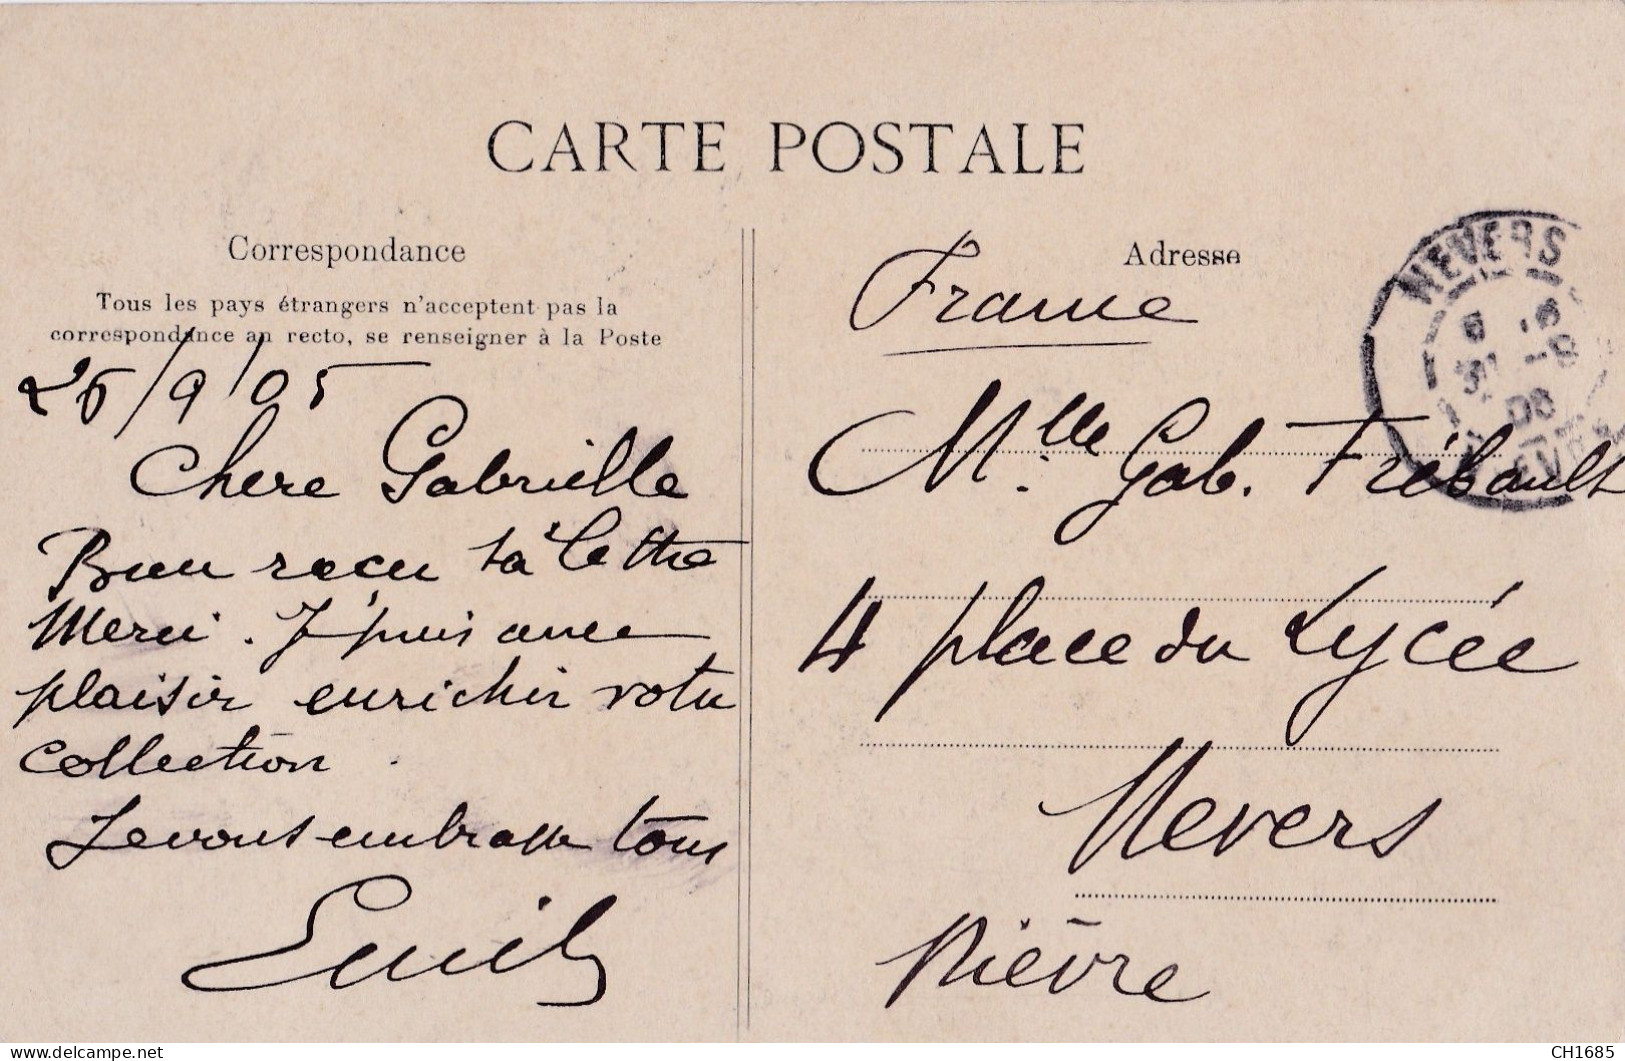 CARTE POSTALE
Correspondance
Tous les pays étrangers n'acceptent pas la
correspondance au recto, se renseigner à la Poste
26/9/05
Chere Gabrielle
Bien reçu ta lettre
Merci. Je puis avec
plaisir enrichir votre
collection.
Je vous embrasse tous
Emile
Adresse
France
Mlle Gab. Frébault
4 place du Lycée
Nevers
Nièvre
NEVERS
CH1685